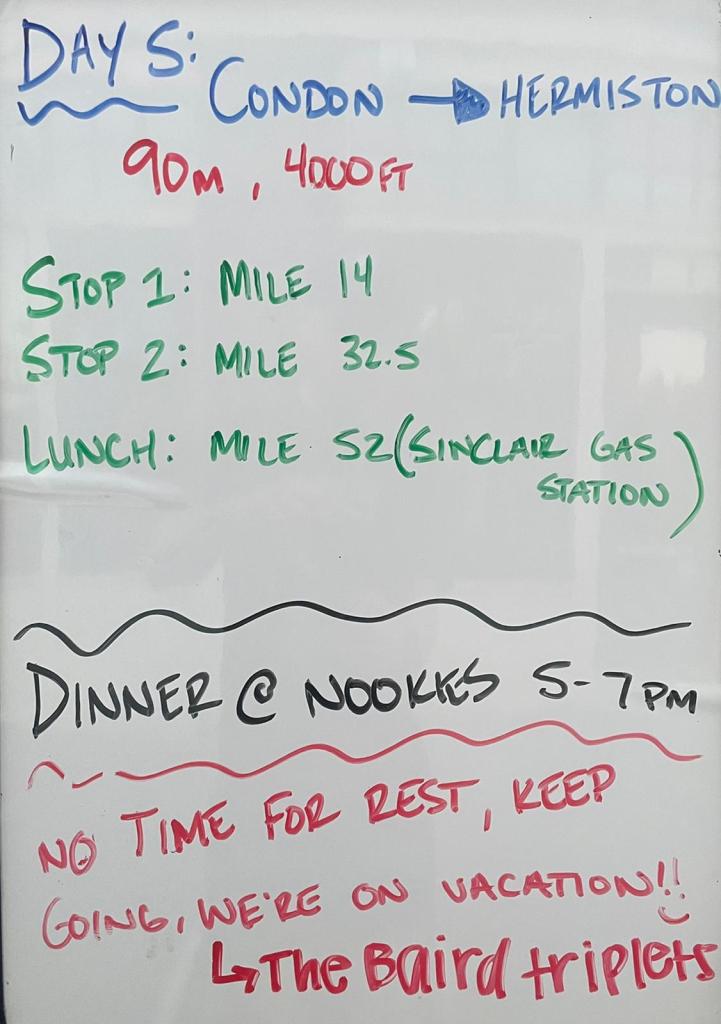 DAY 5:
CONDON → HERMISTON
90M, 4000FT
STOP 1: MILE 14
STOP 2: MILE 32.5
LUNCH: MILE 52 (SINCLAIR GAS
STATION)
DINNER @ NOOKIES 5-7PM
NO TIME FOR REST, KEEP
GOING, WE'RE ON VACATION!!
↳ The Baird triplets